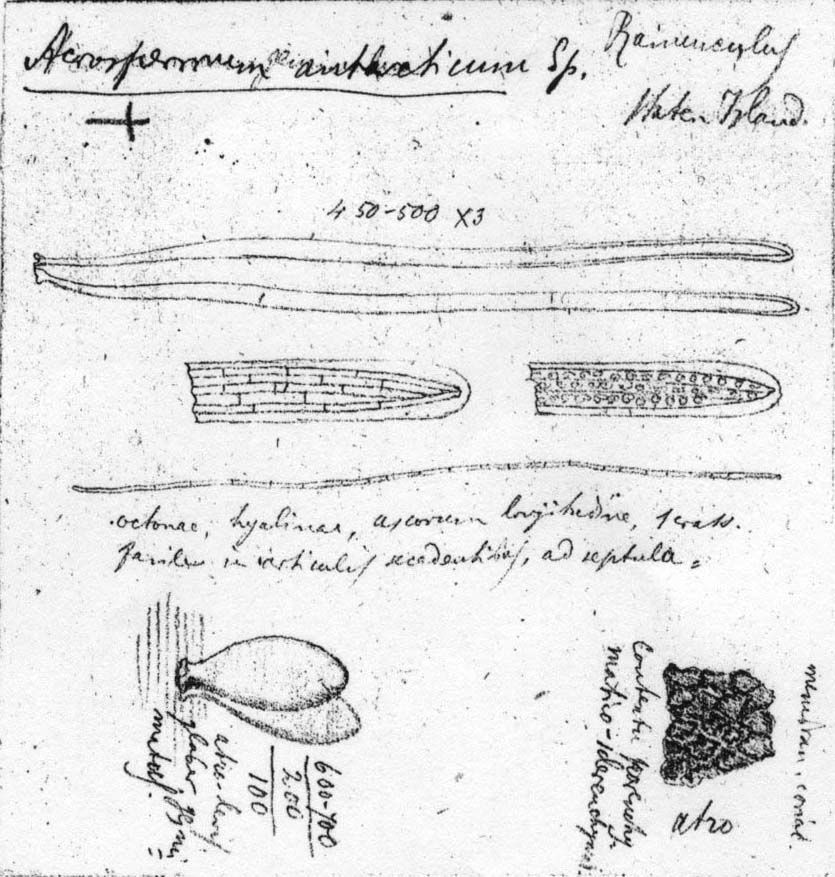 Acrospermum antarcticum Sp.
Ranunculus
Staten Island.
450-500 X3
octonae, hyalinae, ascorum longitudine, 1 crass.
facile in articulis secedentibus, ad septula
600-700
200
100
atro-
glaber
contextu parenchy
matico-sclerenchym.
atro
membran. coriac.